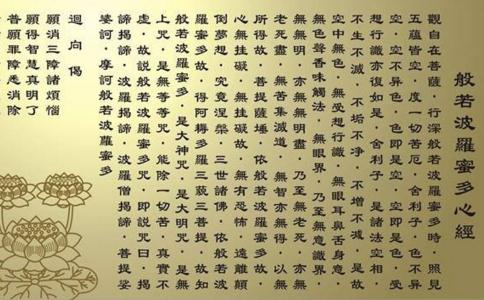 般若波羅蜜多心經
觀自在菩薩·行深般若波羅蜜多時·照見
五蘊皆空·度一切苦厄·舍利子·色不異
空·空不異色·色即是空·空即是色·受
想行識亦復如是·舍利子·是諸法空相·
不生不滅·不垢不淨·不增不減·是故
空中無色·無受想行識·無眼耳鼻舌身意·
無色聲香味觸法·無眼界·乃至無意識界·
無無明·亦無無明盡·乃至無老死·亦無
老死盡·無苦集滅道·無智亦無得·以無
所得故·菩提薩埵·依般若波羅蜜多故·
心無挂礙·無挂礙故·無有恐怖·遠離顛
倒夢想·究竟涅槃·三世諸佛·依般若波
羅蜜多故·得阿耨多羅三藐三菩提·故知
般若波羅蜜多·是大神咒·是大明咒·是無
上咒·是無等等咒·能除一切苦·真實不
虛·故說般若波羅蜜多咒·即說咒曰·揭
諦揭諦·波羅揭諦·波羅僧揭諦·菩提娑
婆訶·摩訶般若波羅蜜多
迴向偈
願消三障諸煩惱
願得智慧真明了
普願罪障悉消除